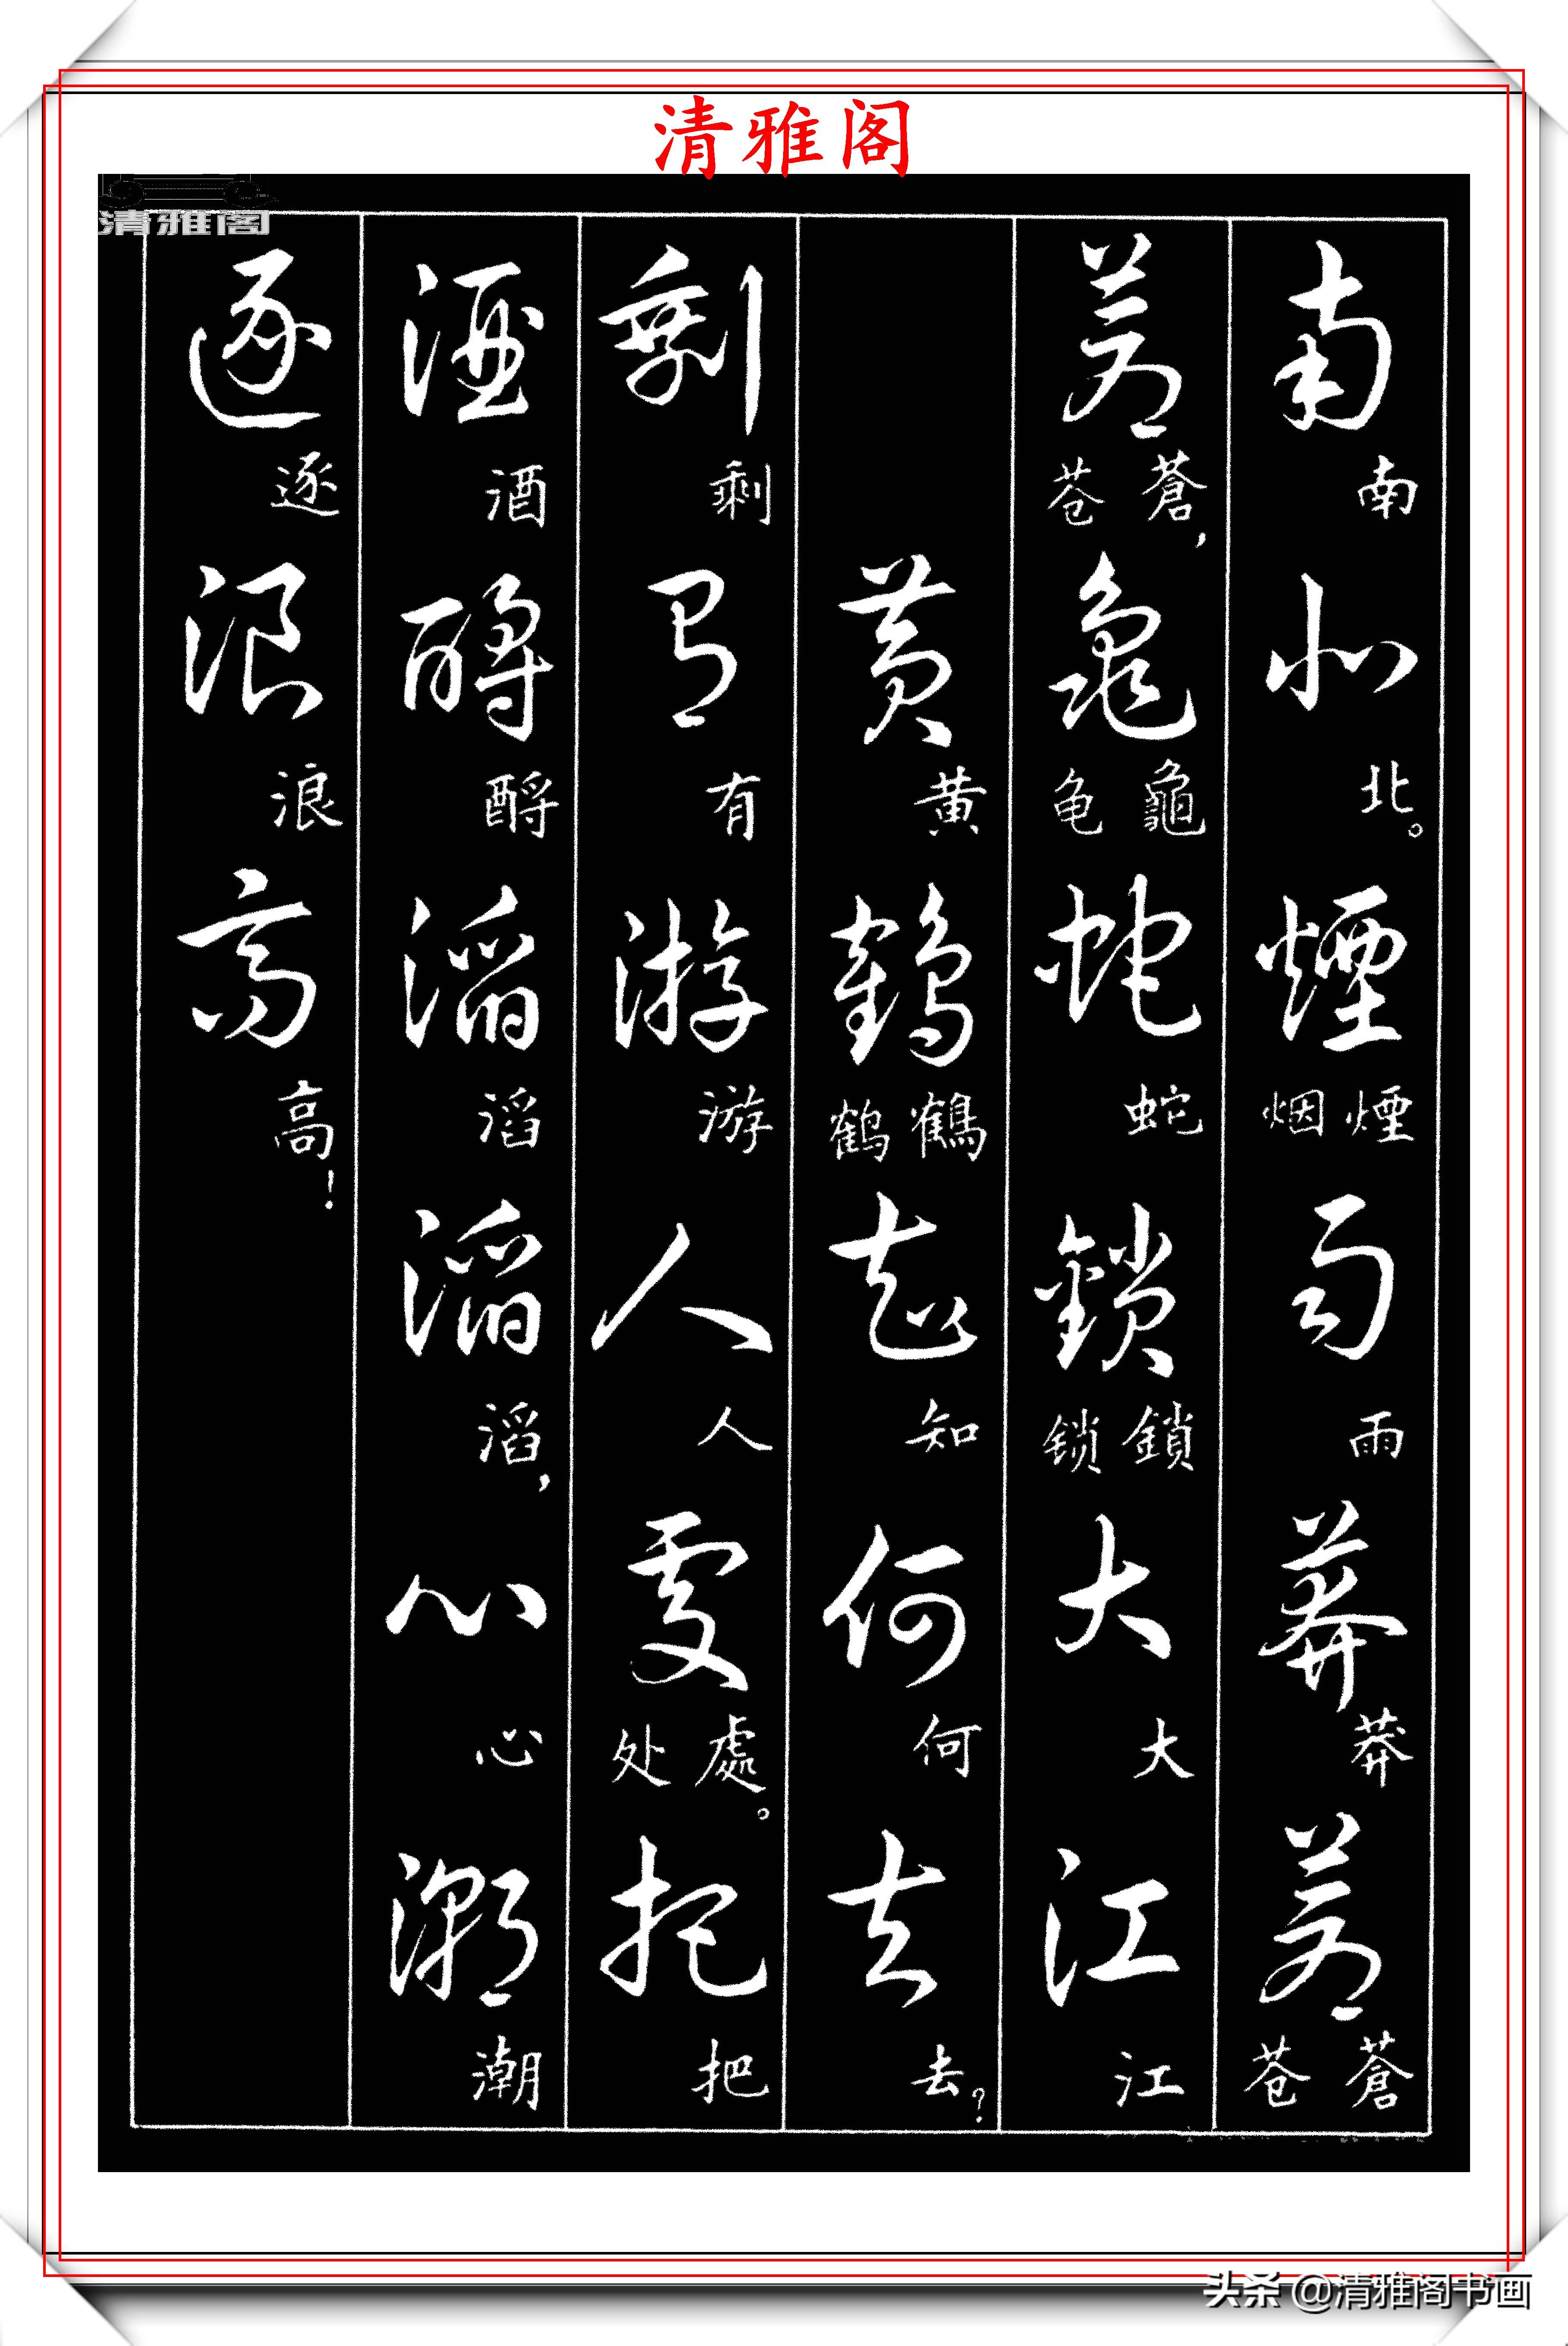 清雅阁
清雅阁
南南北北。煙煙烟雨雨莽莽蒼蒼苍
蒼蒼苍，龜龜龟蛇蛇鎖鎖锁大大江江
黄黄鶴鶴鹤知知何何去去？
剩剩有有游游人人處處处。把把
酒酒酹酹滔滔滔滔，心心潮潮
逐逐浪浪高高！
头条 @清雅阁书画